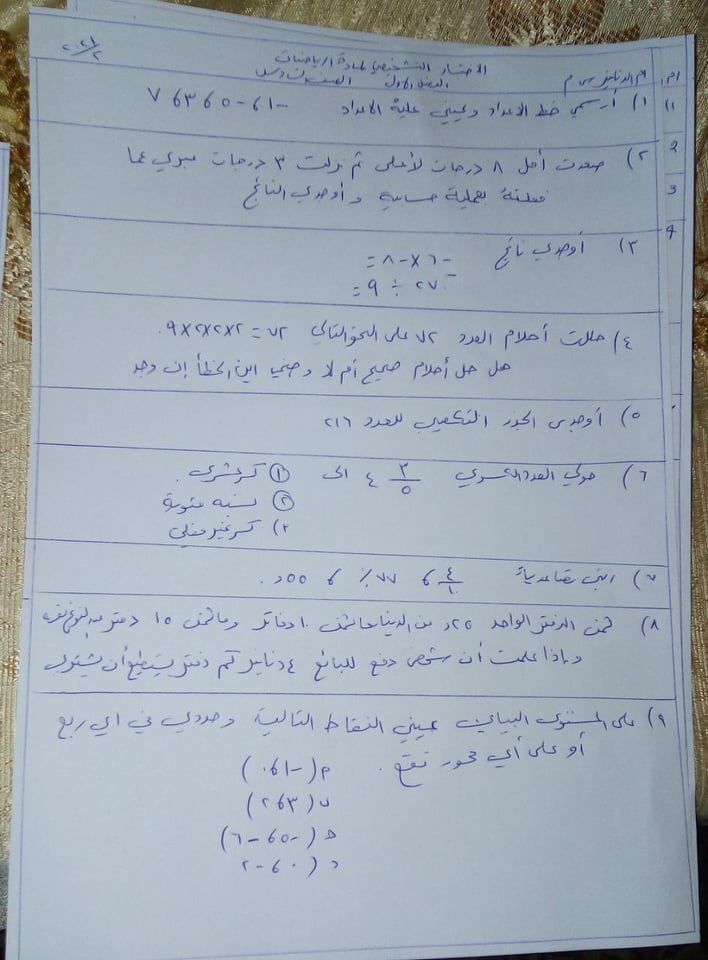 الاختبار التشخيصي لمادة الرياضيات
الفصل الأول الصف السادس
٢٠٢١/٢
١) أرسمي خط الاعداد وعيني عليه الاعداد -١، -٥، ٣، ٧
٢) صعدت أمل ٨ درجات لأعلى ثم نزلت ٣ درجات عبري عما
فعلته بعملية حسابية وأوجدي الناتج
٣) أوجدي ناتج -٦ × -٨ =
-٢٧ ÷ ٩ =
٤) حللت أحلام العدد ٧٢ على النحو التالي ٧٢ = ٢×٢×٢×٩.
هل حل أحلام صحيح أم لا وضحي اين الخطأ إن وجد
٥) أوجدي الجذر التكعيبي للعدد ٢١٦
٦) حولي العدد الكسري ٤ ٣/٥ الى ① كسر عشري.
② نسبة مئوية
٣) كسر غير فعلي
٧) رتبي تصاعدياً ٤/١٠ ، ٧٧٪ ، ٥٥ر.
٨) ثمن الدفتر الواحد ٢٥ر من الدينار ما ثمن ١٠ دفاتر وما ثمن ١٥ دفتر
وماذا علمت أن شخص دفع للبائع ٤ دنانير كم دفتر يستطيع أن يشتري
٩) على المستوى البياني عيني النقاط التالية وحددي في اي ربع
أو على أي محور تقع.
م (-١، ٠)
ن (٣، ٢)
هـ (-٥، -٦)
د (٠، -٢)